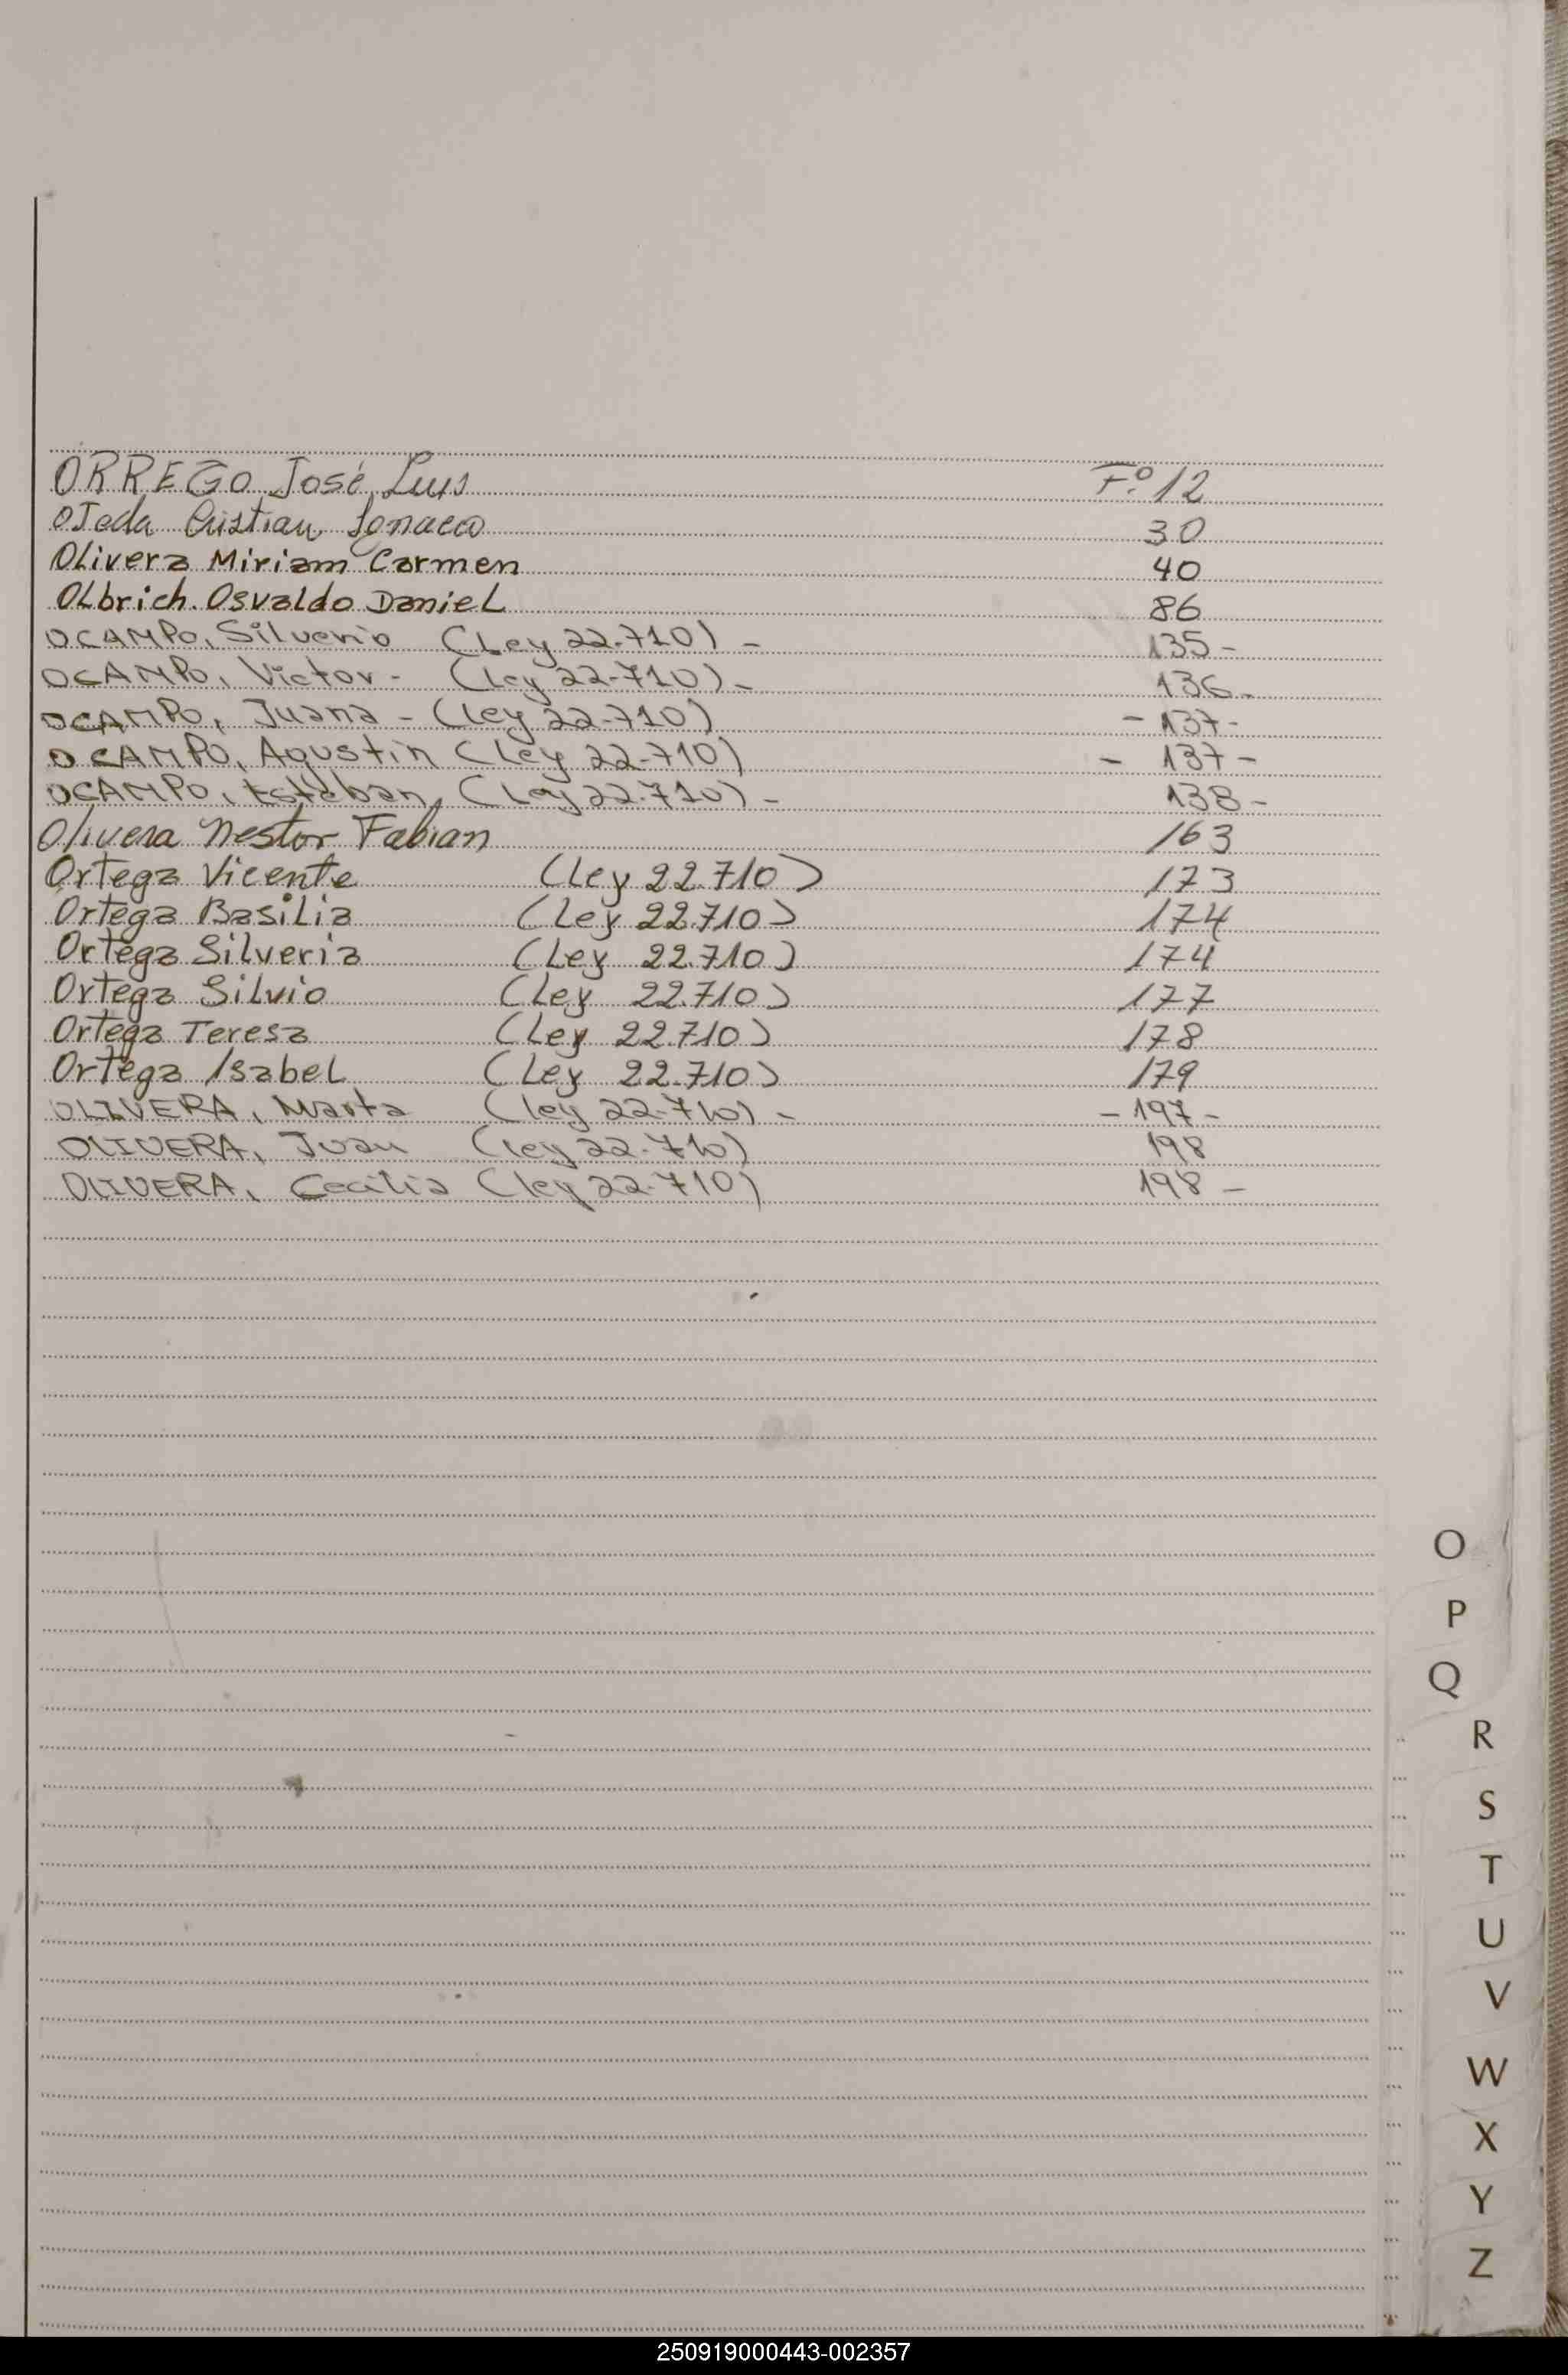 ORREGO José Luis F.º 12
OJeda Cristian Ignacio 30
Olivera Miriam Carmen 40
OLbrich. Osvaldo DanieL 86
OCAMPO, Silverio (Ley 22.710) - 135 -
OCAMPO, Victor - (Ley 22-710) - 136 -
OCAMPO, Juana - (Ley 22-710) - 137 -
OCAMPO, Agustin (Ley 22-710) - 137 -
OCAMPO, Esteban (Ley 22.710) - 138 -
Olivera Nestor Fabian 163
Ortega Vicente (Ley 22.710) 173
Ortega BasiLia (Ley 22.710) 174
Ortega SiLveria (Ley 22.710) 174
Ortega Silvio (Ley 22.710) 177
Ortega Teresa (Ley 22.710) 178
Ortega IsabeL (Ley 22.710) 179
OLIVERA, Marta (Ley 22-710) - - 197 -
OLIVERA, Juan (Ley 22-710) 198
OLIVERA, Cecilia (Ley 22-710) 198 -
O
P
Q
R
S
T
U
V
W
X
Y
Z
250919000443-002357